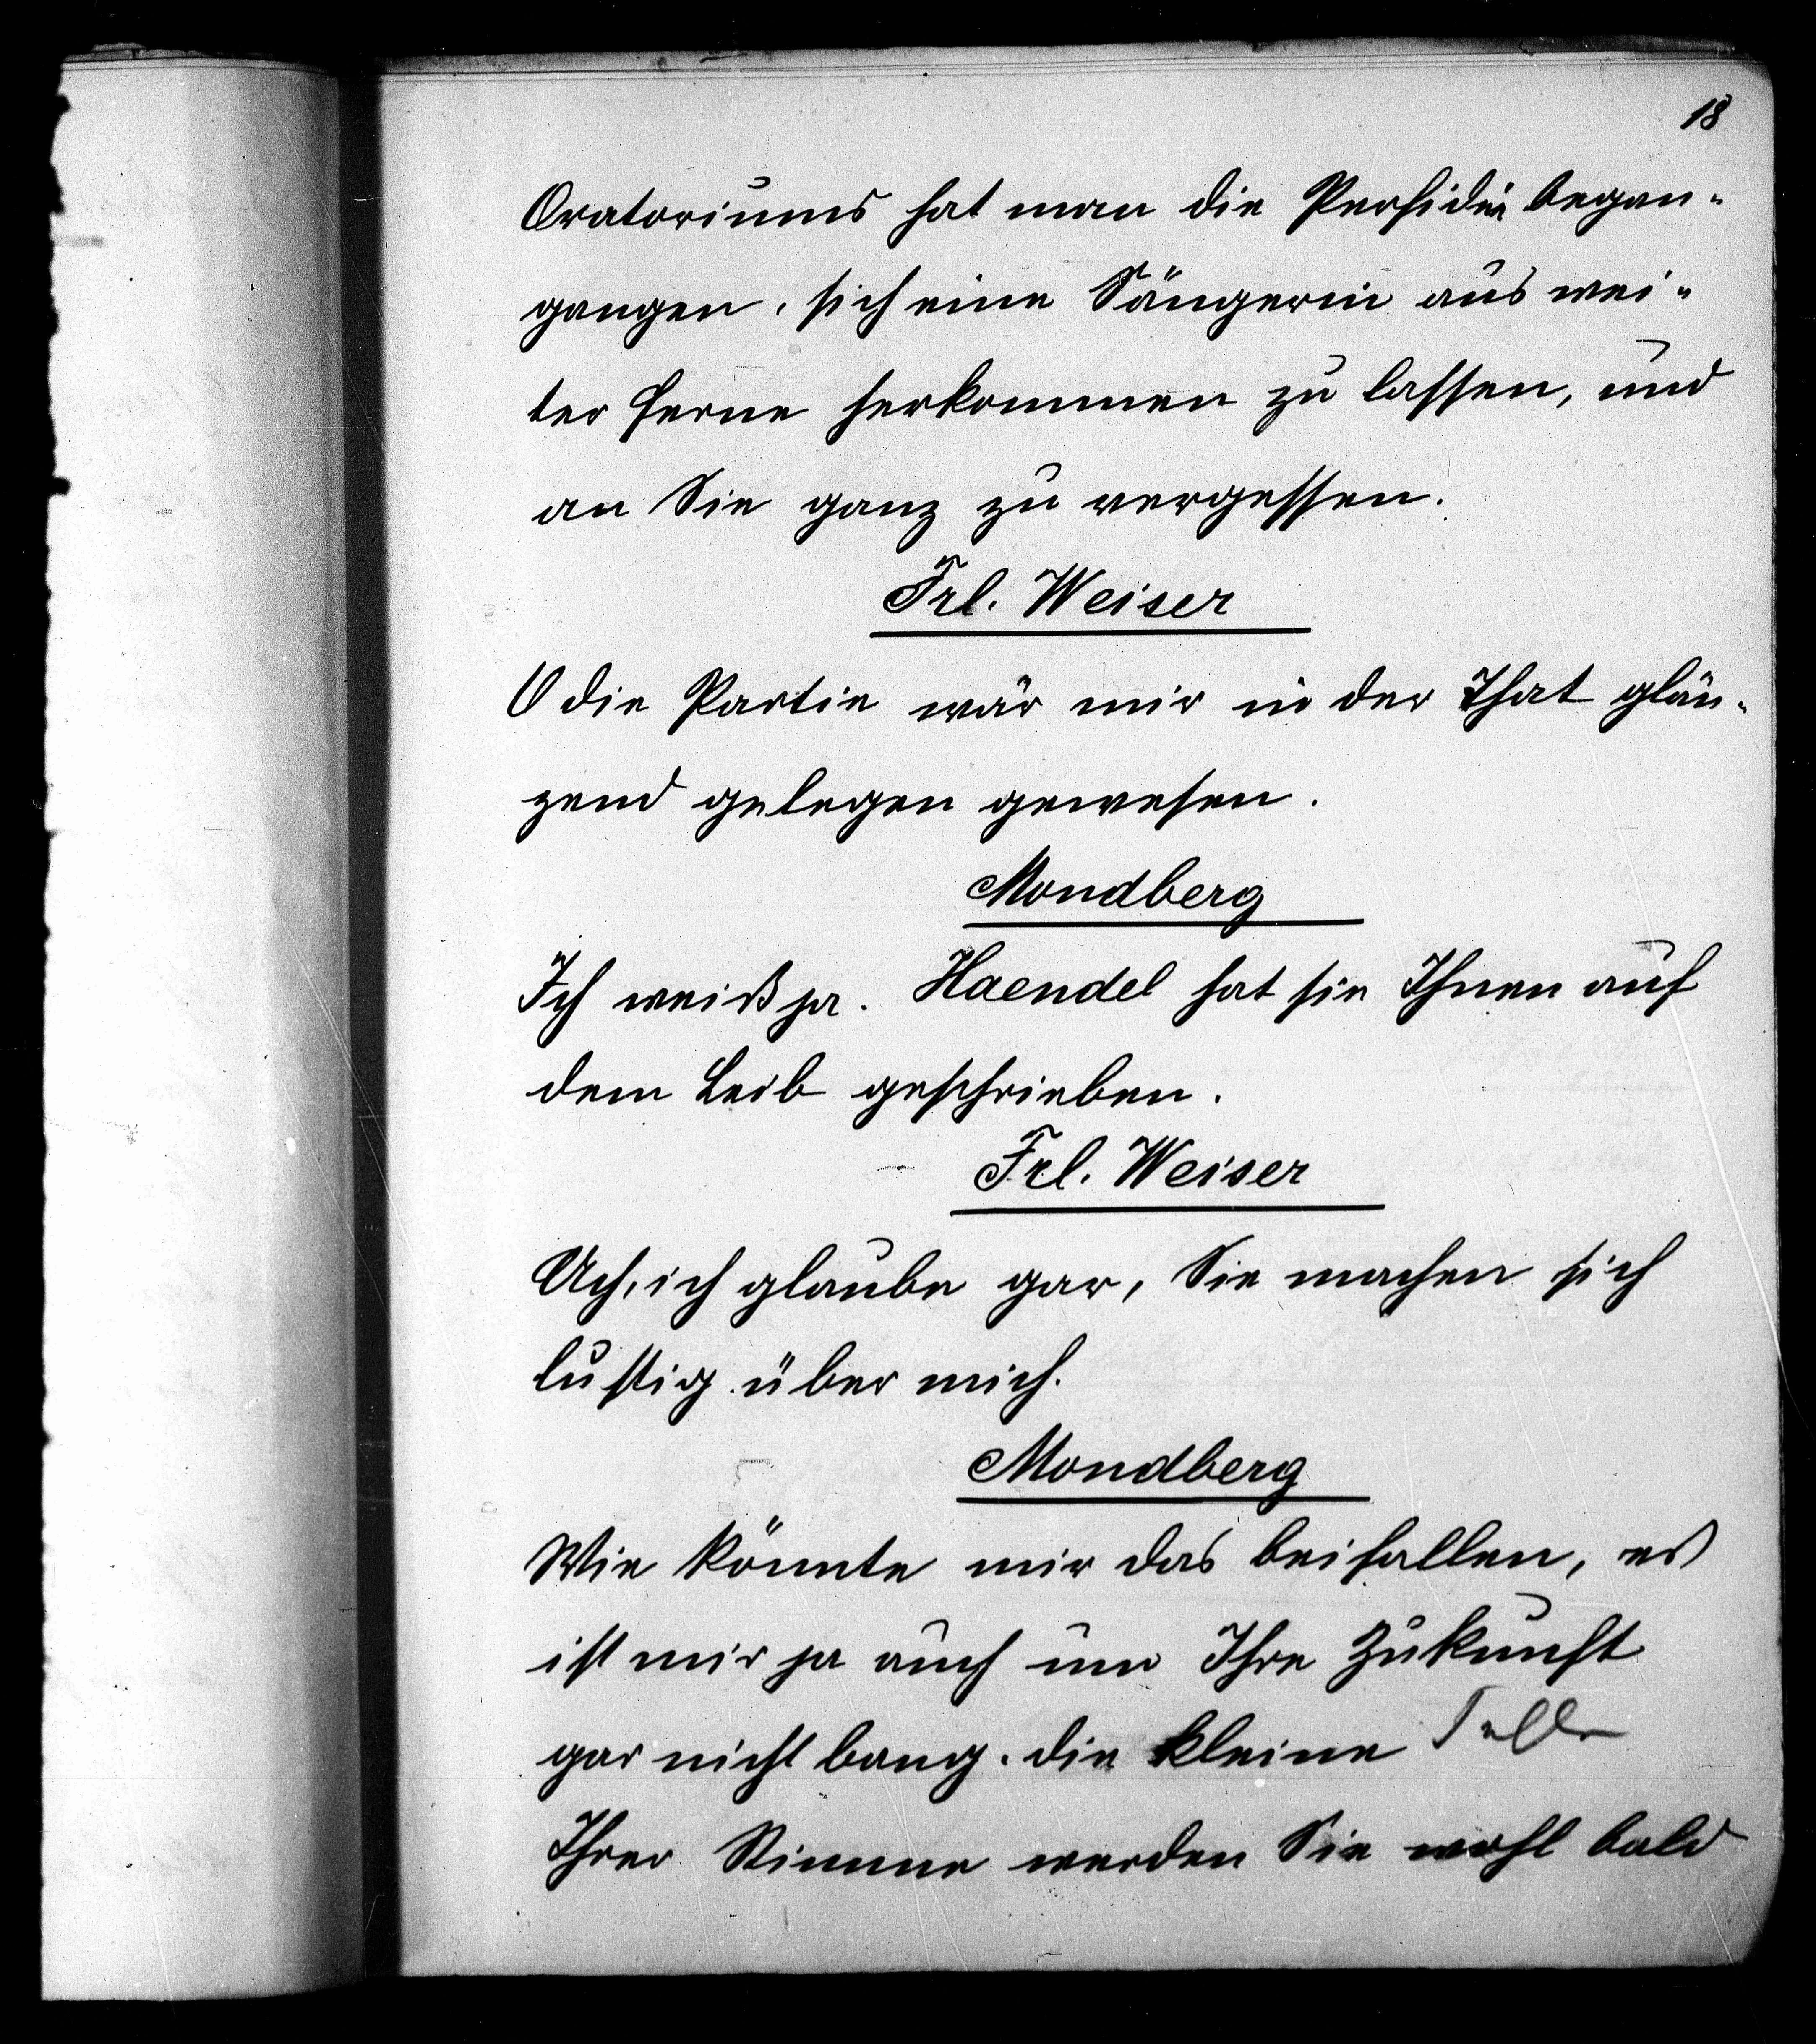 18
Oratoriums hat man die Perfidie began-
gangen, sich eine Sängerin aus wei-
ter Ferne herkommen zu lassen, und
an Sie ganz zu vergessen.
Frl. Weiser
O die Partie wär mir in der That glän-
zend gelegen gewesen.
Mondberg
Ich weiß ja. Haendel hat sie Ihnen auf
dem Leib geschrieben.
Frl. Weiser
Ach, ich glaube gar, Sie machen sich
lustig über mich.
Mondberg
Wie könnte mir das beifallen, es
ist mir ja auch um Ihre Zukunft
gar nicht bang. die kleine
Ihrer Stimme werden Sie wohl bald